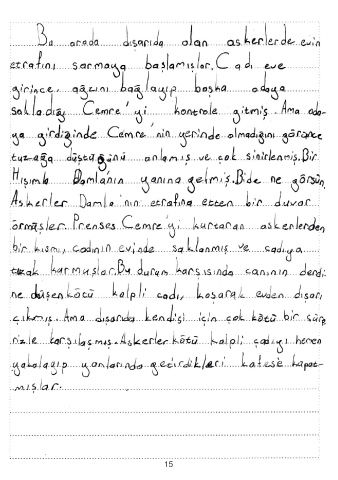 Bu arada dışarıda olan askerlerde evin
etrafını sarmaya başlamışlar. Cadı eve
girince, ağzını bağlayıp başka odaya
sakladığı Cemre'yi kontrole gitmiş. Ama oda-
ya girdiğinde Cemre'nin yerinde olmadığını görünce
tuzağa düştüğünü anlamış ve çok sinirlenmiş. Bir
Hışımla Damla'nın yanına gelmiş. Bide ne görsün,
Askerler Damla'nın etrafına etten bir duvar
örmüşler. Prenses Cemre'yi kurtaran askerlerden
bir kısmı, cadının evinde saklanmış ve cadıya
tuzak kurmuşlar. Bu durum karşısında canının derdi-
ne düşen kötü kalpli cadı, koşarak evden dışarı
çıkmış. Ama dışarıda kendisi için çok kötü bir sürp-
rizle karşılaşmış. Askerler kötü kalpli cadıyı hemen
yakalayıp yanlarında getirdikleri kafese kapat-
mışlar.
15